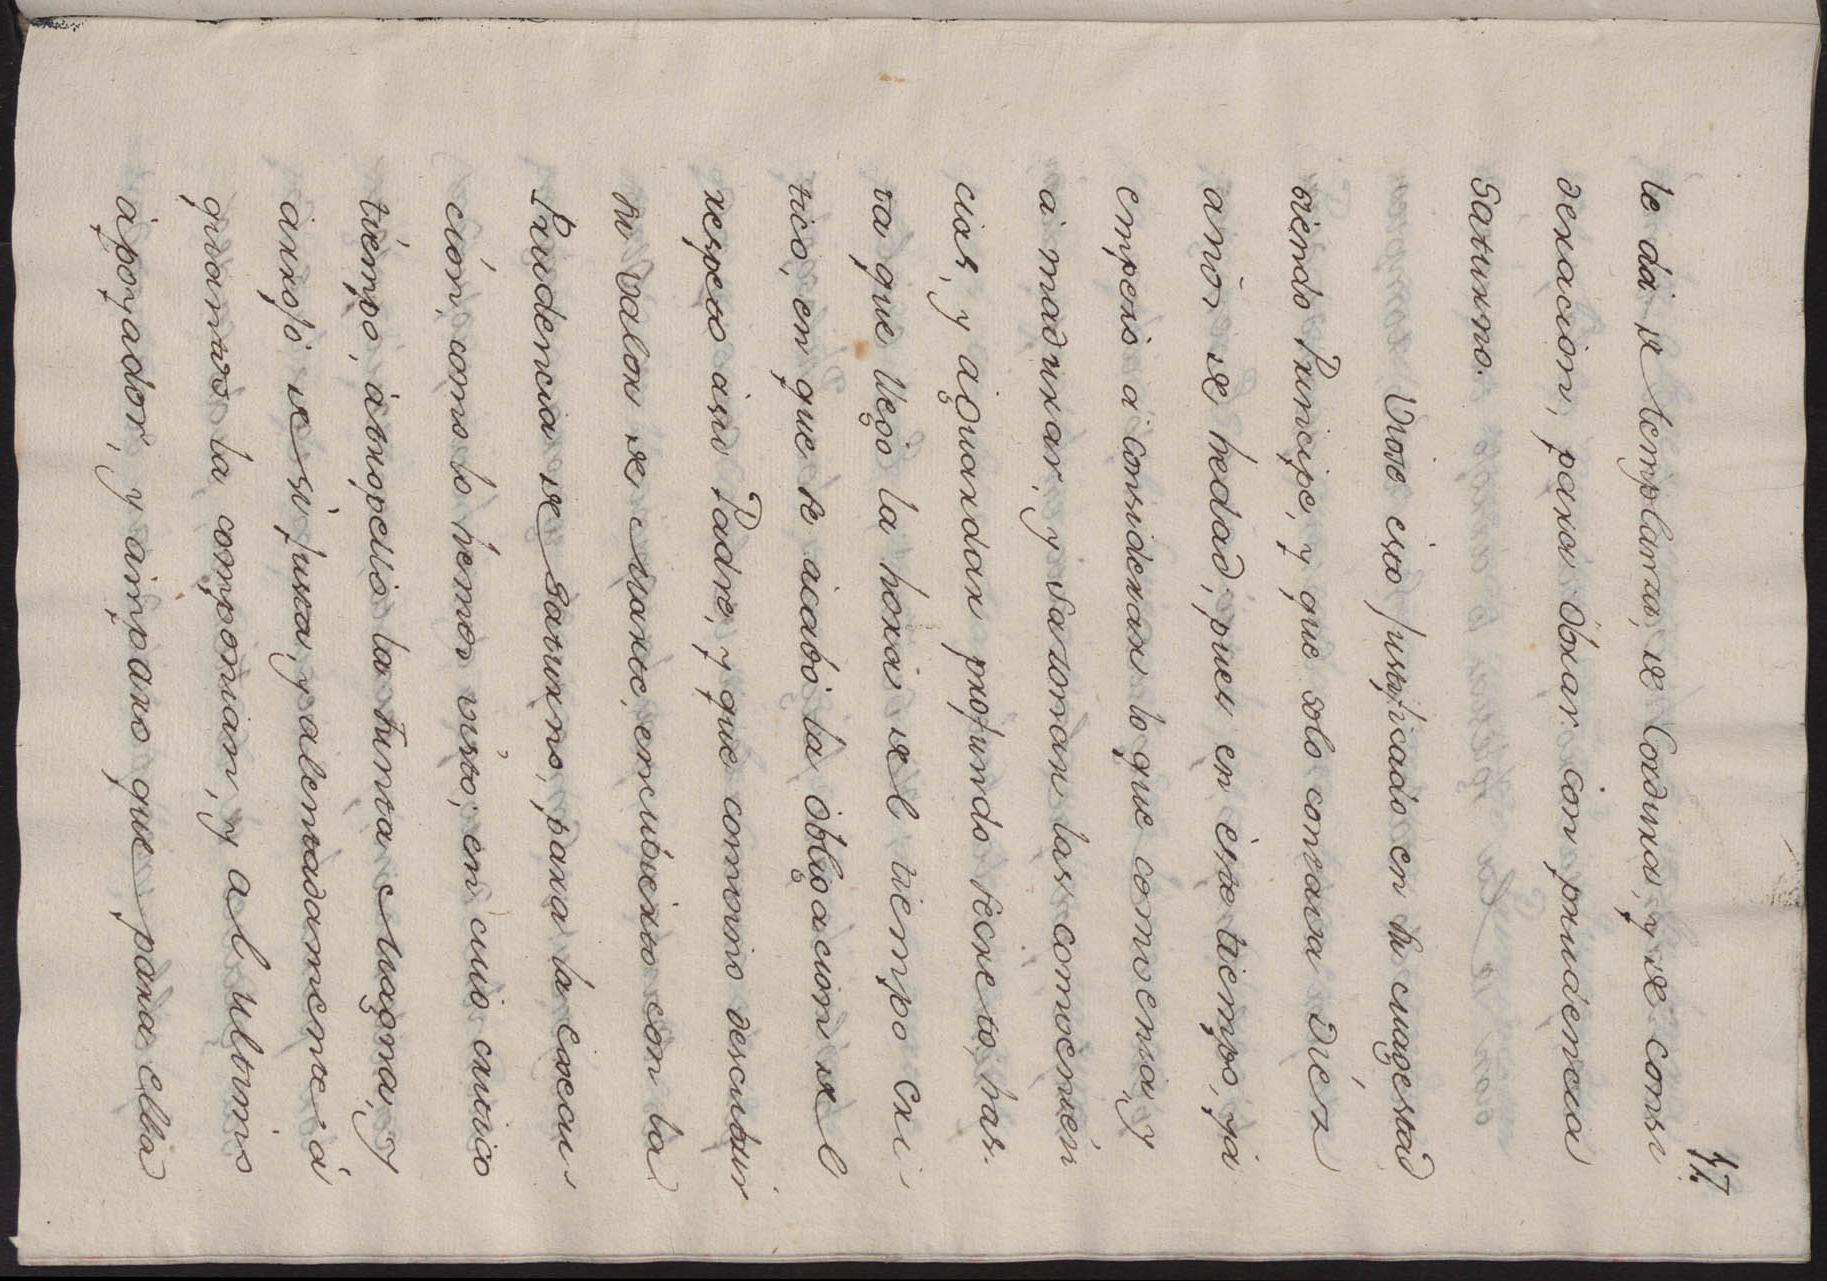 17.
le dá de templanza, de Cordura, y de consi
deracion, para óbrar con prudencia
Saturno.
Viose esto justificado en su Magestad
siendo Principe, y que solo contava Diez
años de hedad, pues en éste tiempo, yá
empezò a considerar lo que convenia, y
á madurar, y sazonar las convenien
cias, y aguardar profundo secreto, has-
ta que llegó la hora de el tiempo Cri-
tico, en que se acabó la óbligacion de el
respeto ásu Padre, y que convino descubrir
su valor de Marte, encubierto con la
Prudencia de Saturno, para la execu-
ción, como lo hemos visto; en cuio critico
tiempo, átropelló la Junta Magna, y
arrojó de si justa, y alentadamente á
quantos la componian, y al ultimo
ápoyador, y ámparo que para ella